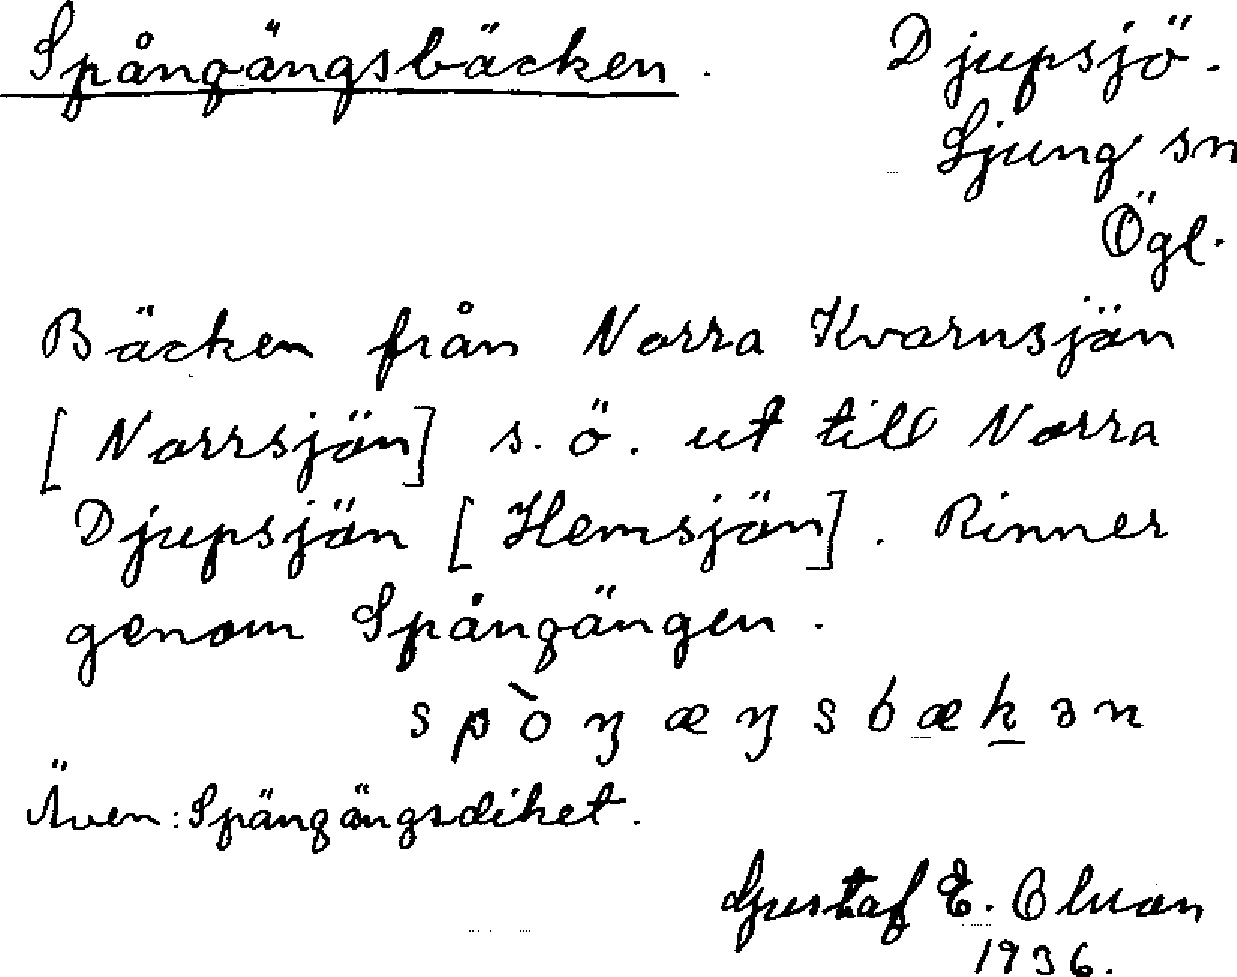 Spångängsbäcken. Djupsjö.
Ljung sn
Ögl.
Bäcken från Norra Kvarnsjön
[Norrsjön] s.ö. ut till Norra
Djupsjön [Hemsjön]. Rinner
genom Spångängen.
spòŋæŋsbækən
Även: Spångängsdiket.
Gustaf E.
1936.